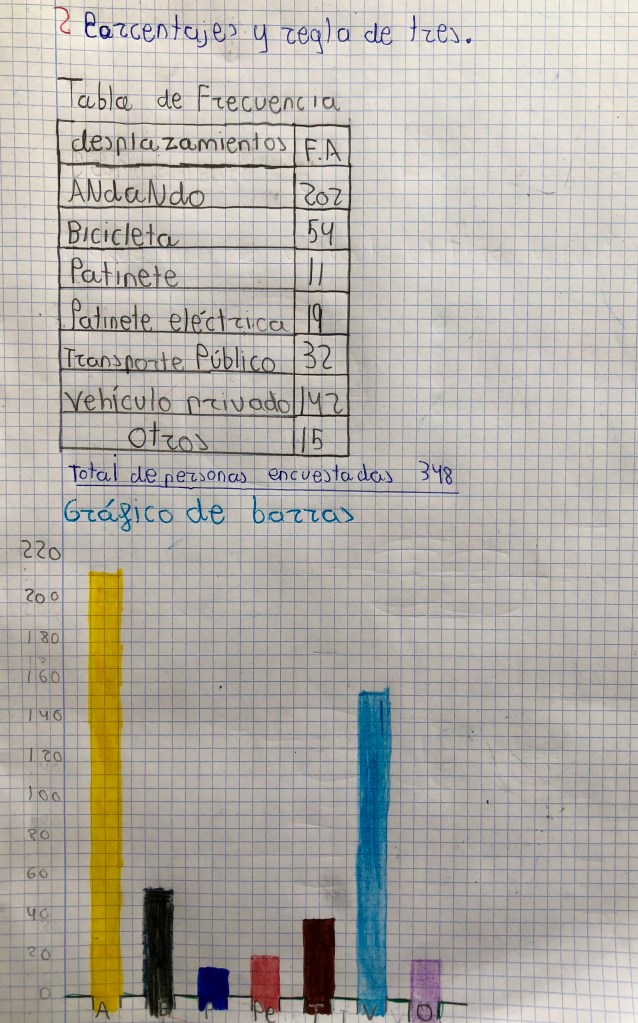 2 Porcentajes y regla de tres.
Tabla de Frecuencia
desplazamientos F.A
ANdaNdo 202
Bicicleta 54
Patinete 11
Patinete eléctrica 19
Transporte Público 32
Vehículo privado 142
Otros 15
Total de personas encuestadas 348
Gráfico de barras
220
200
180
160
140
120
100
80
60
40
20
0
A B P Pe T V O